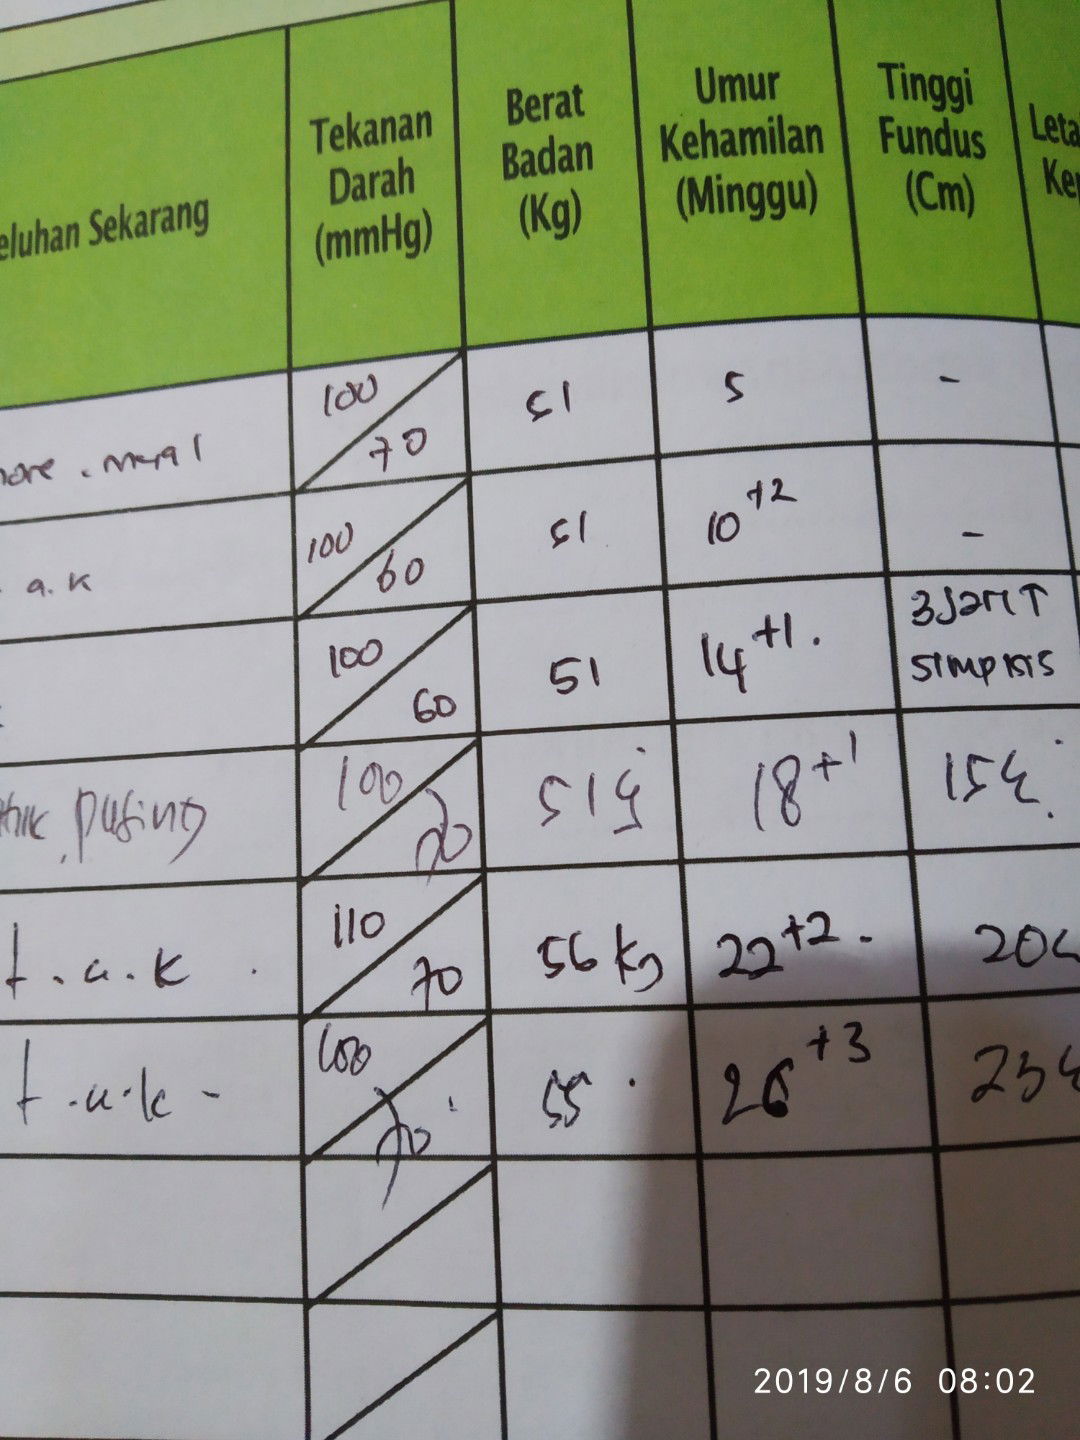 eluhan Sekarang
Tekanan
Darah
(mmHg)
Berat
Badan
(Kg)
Umur
Kehamilan
(Minggu)
Tinggi
Fundus
(Cm)
Leta
Kep
100
70
51
5
-
a.k
100
60
51
10 +2
-
100
60
51
14 +1.
3 Jari ↑
simpisis
pusing
100
70
51
18 +1
15
t.a.k .
110
70
56 kg
22 +2 -
20
t.a.k -
100
70
55 .
26 +3
25
2019/8/6 08:02